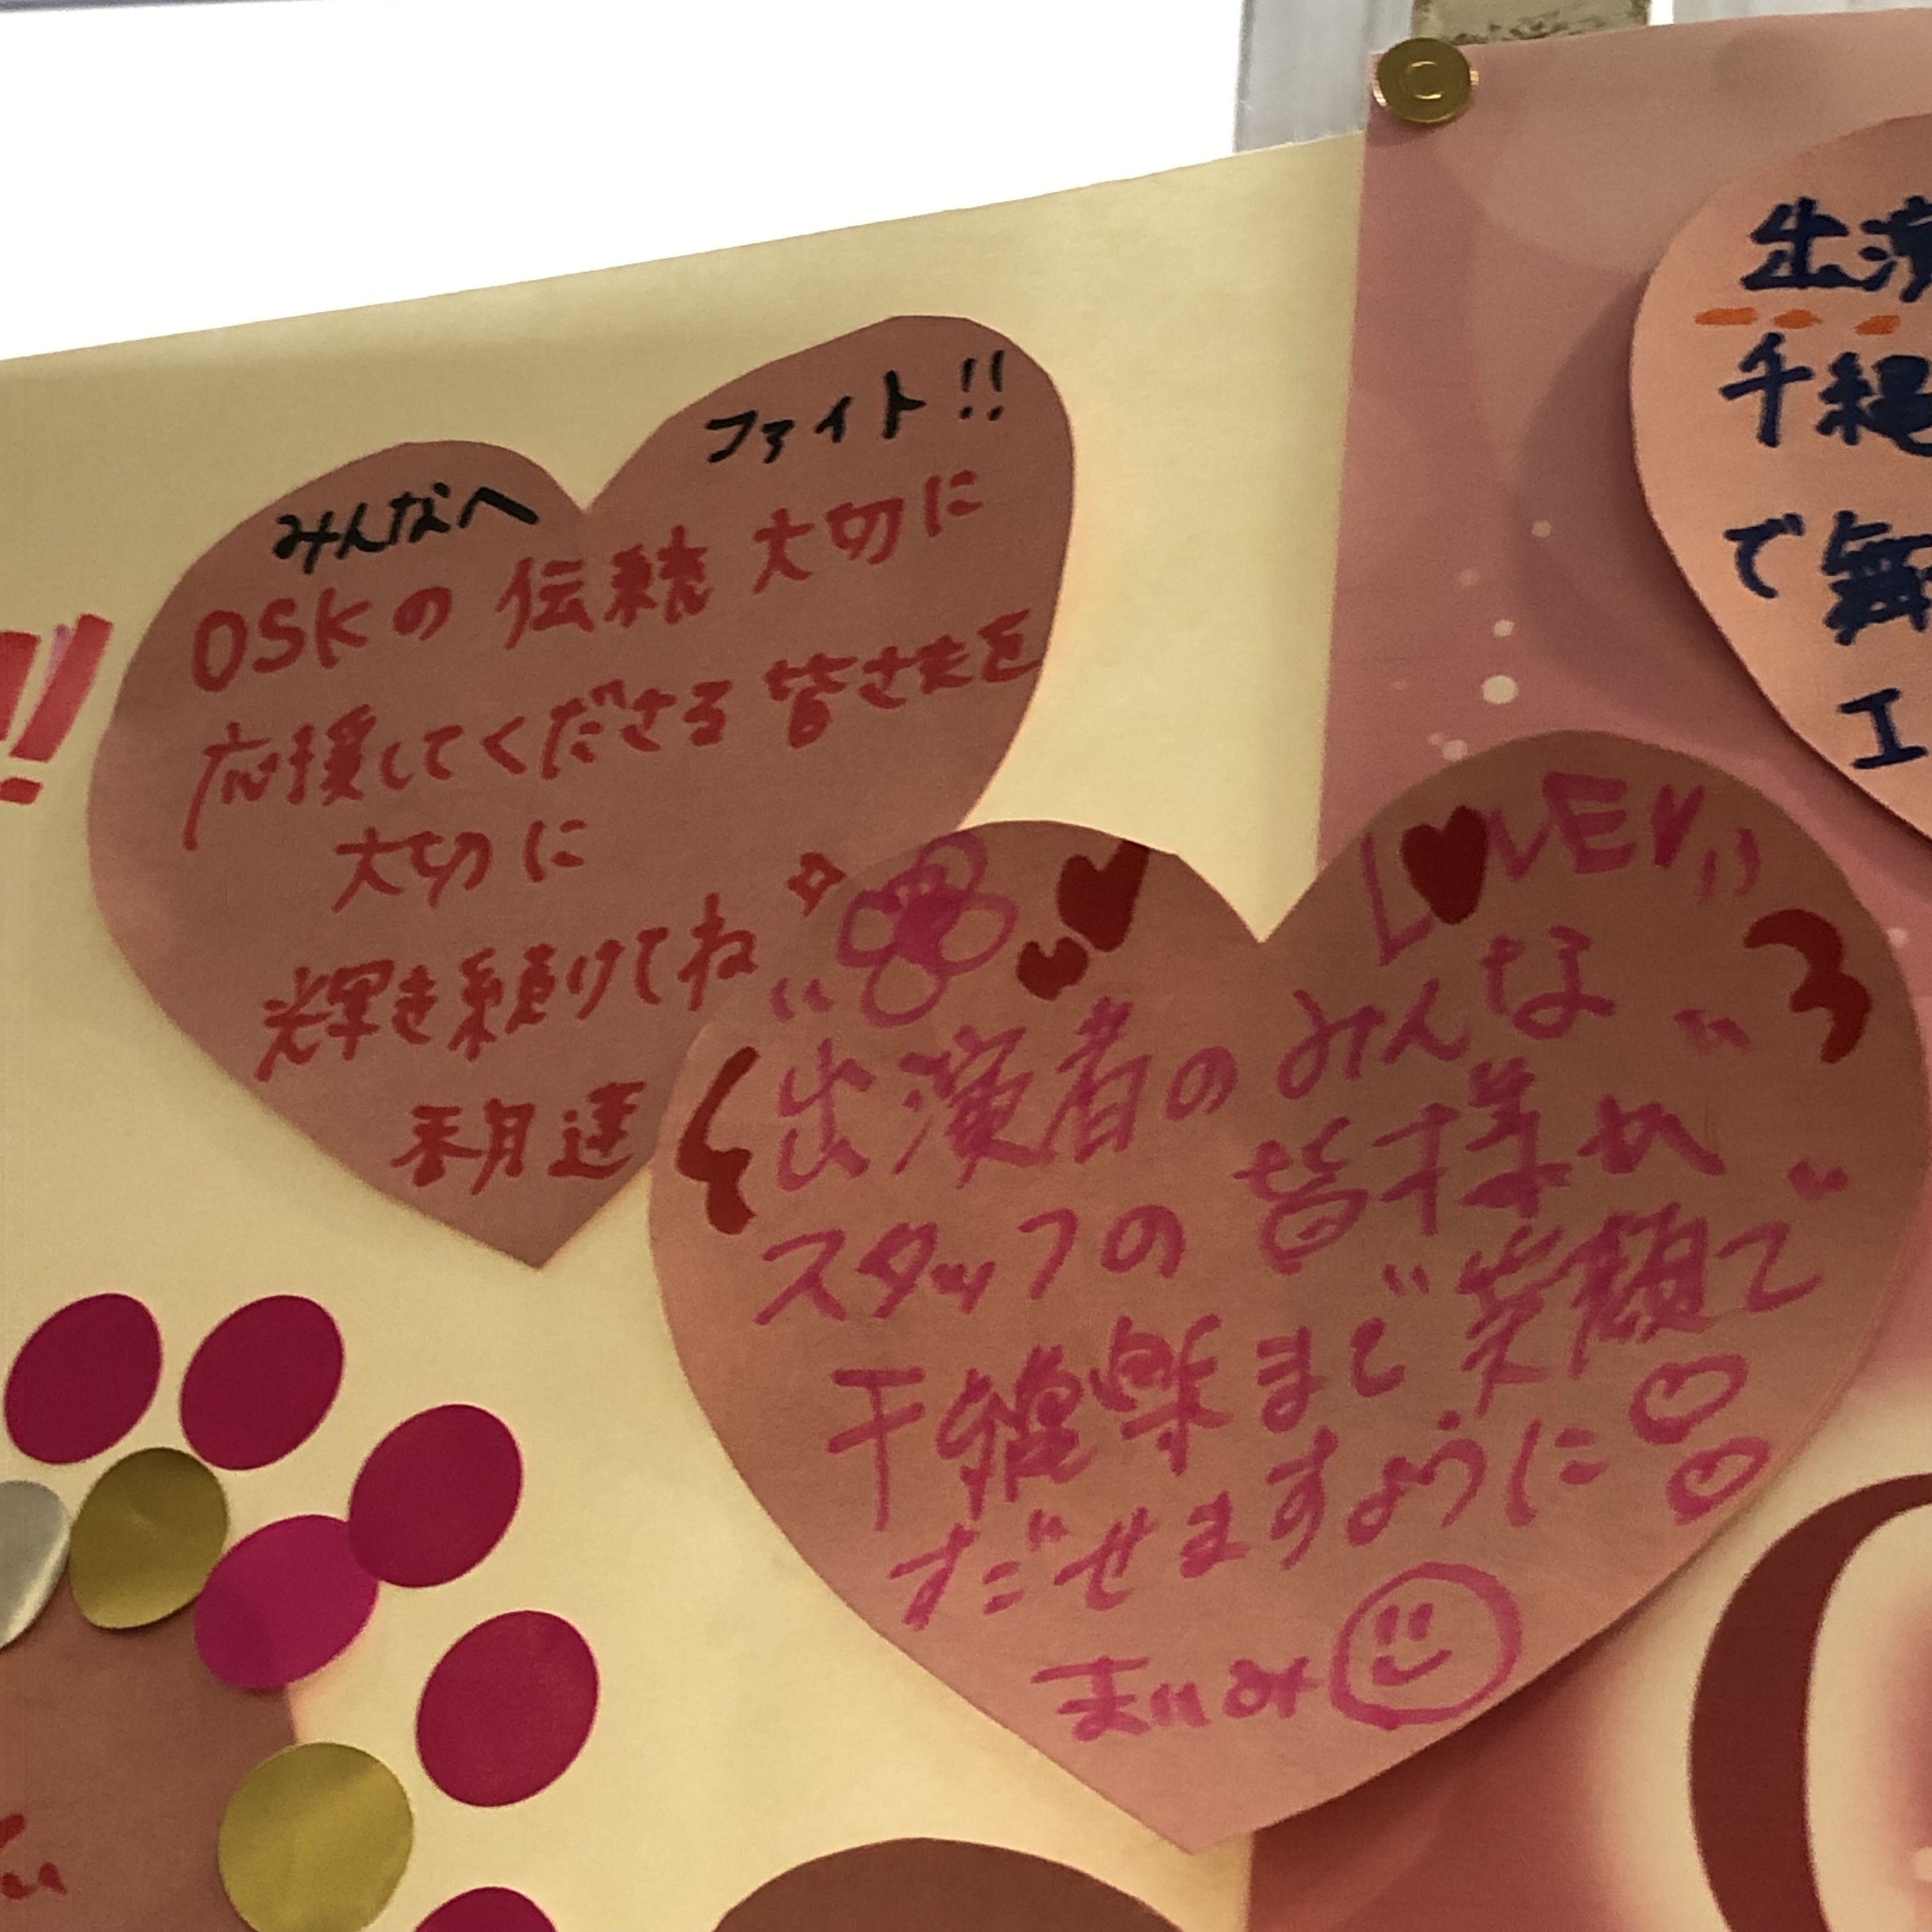 みんなへ
ファイト!!
OSKの伝統 大切に
応援してくださる皆さまを
大切に
輝き続けてね
香月蓮
LOVE
出演者のみんな
スタッフの皆様が
千穐楽まで笑顔で
すごせますように
まいみ
!!
出演
千穐
で舞
エ